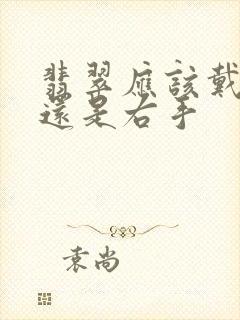 翡翠應該戴
還是右手
袁尚